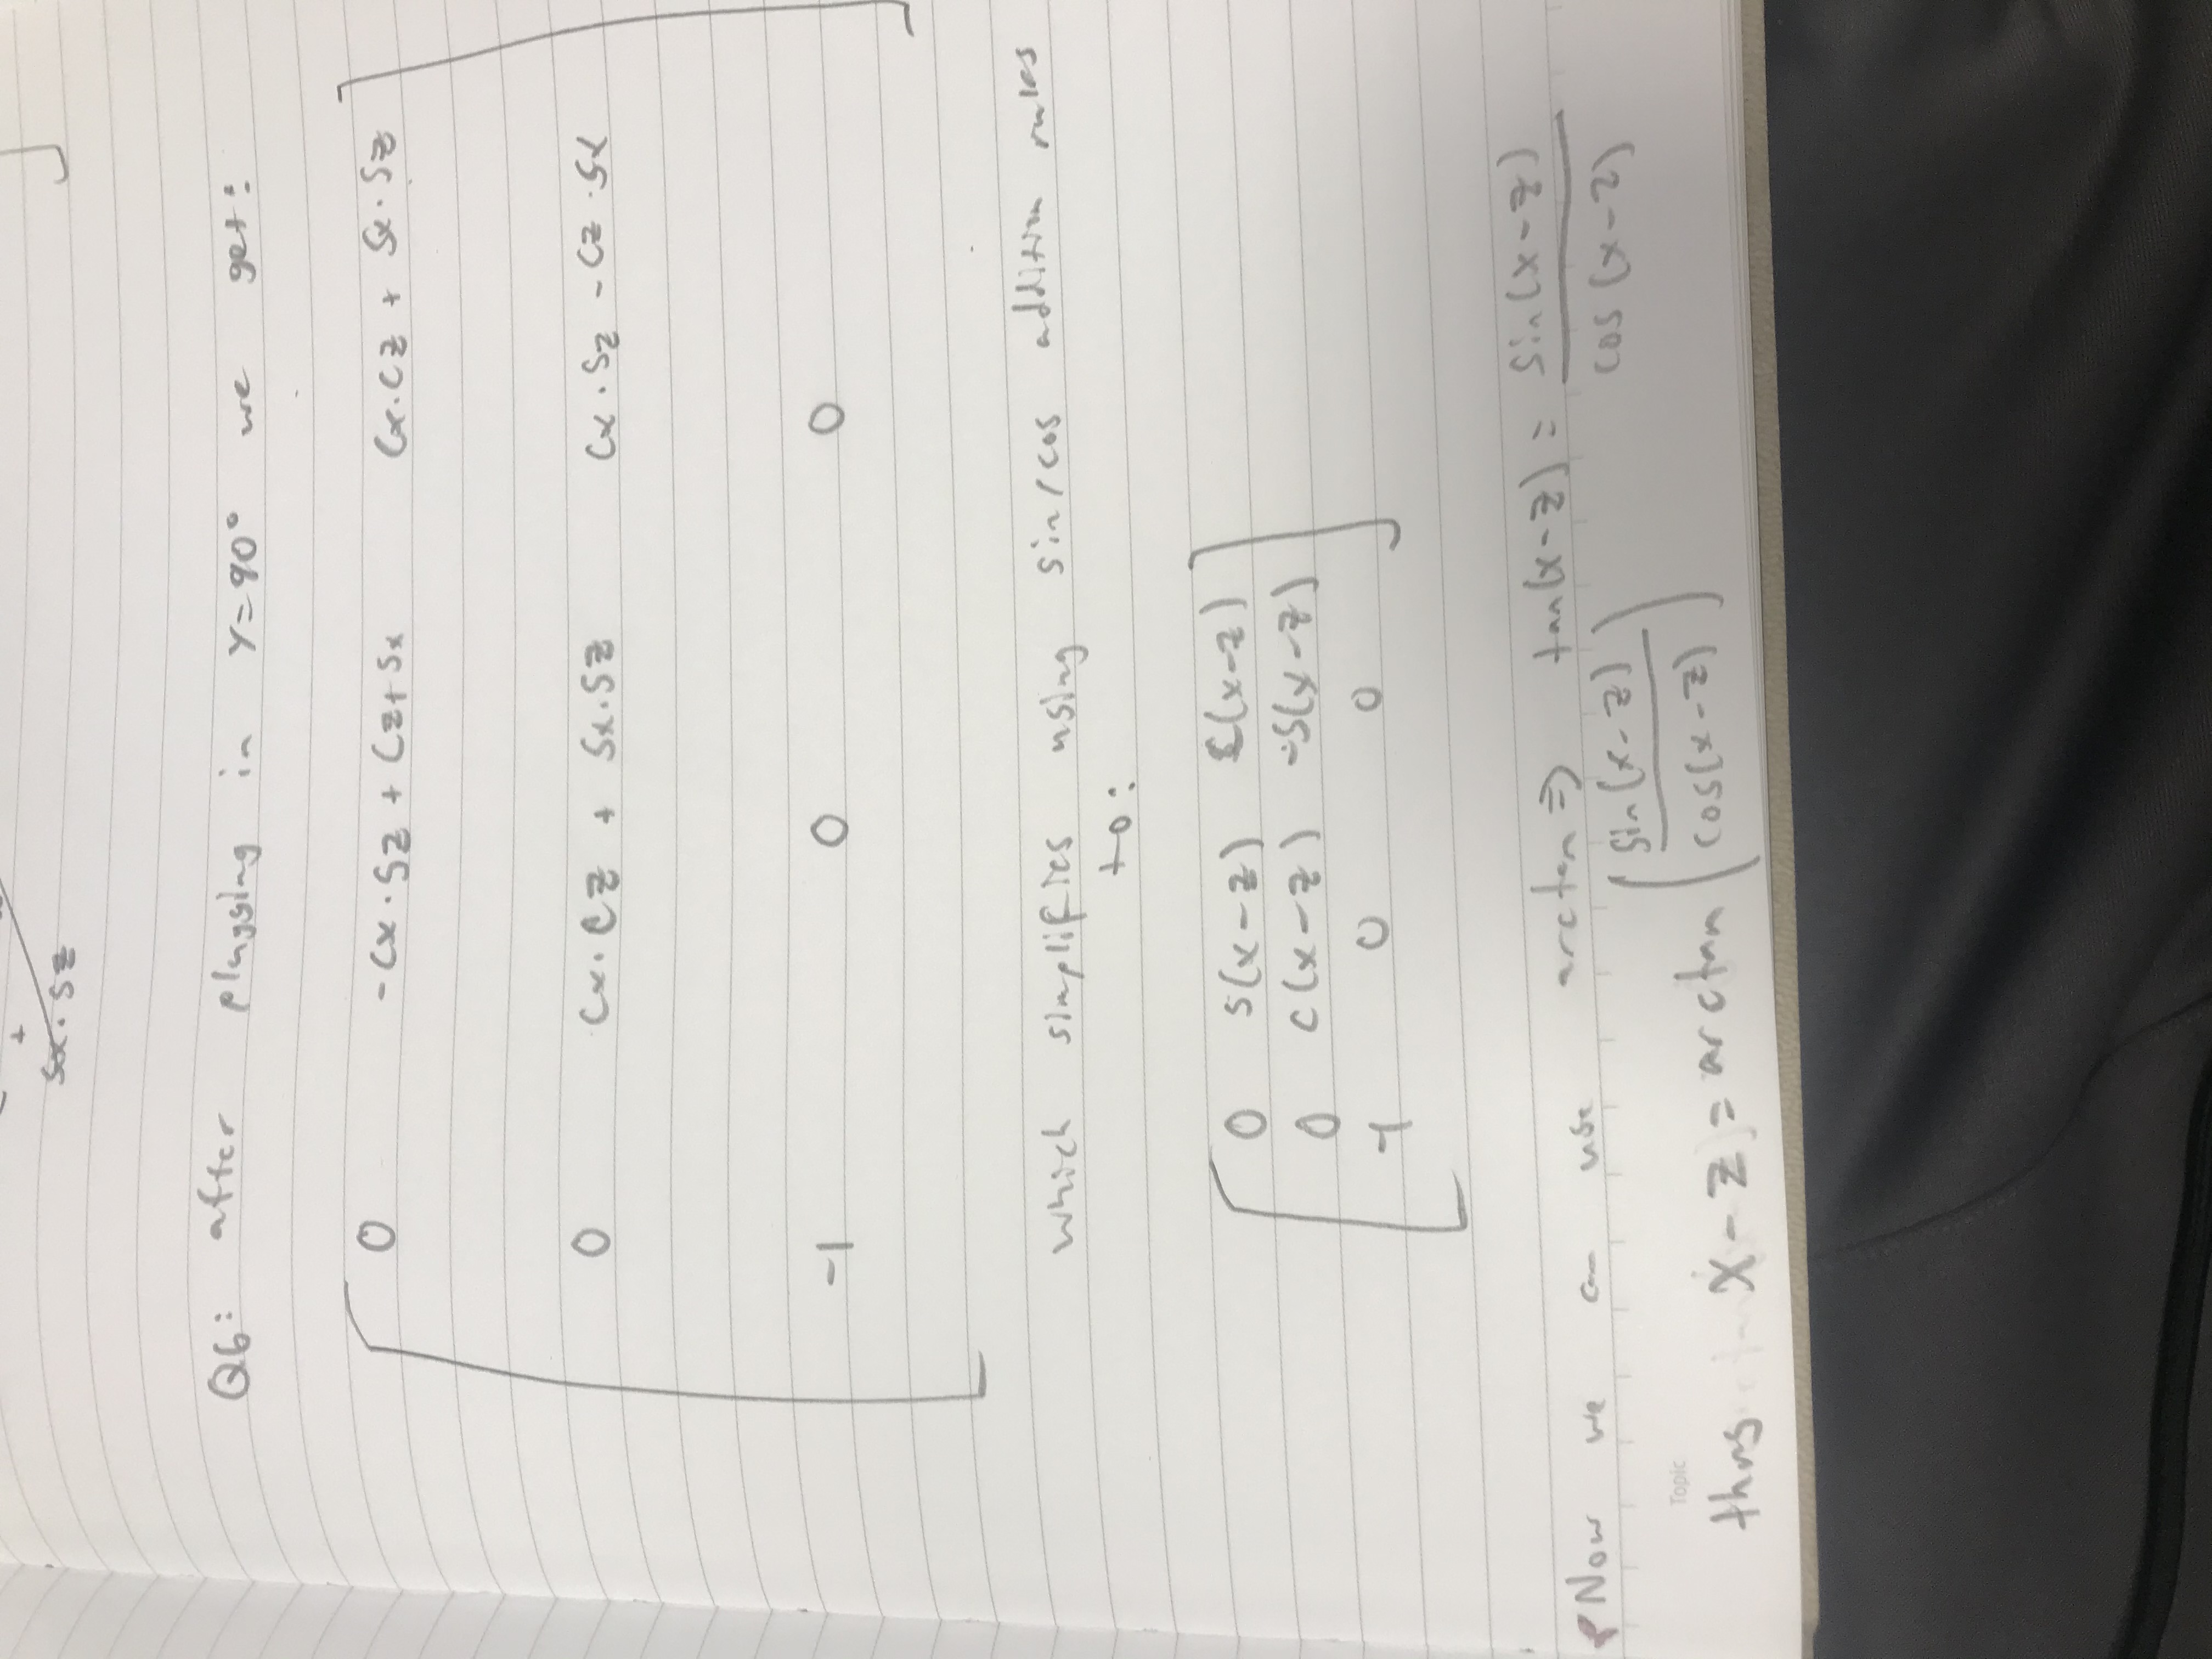 +
Sx . Sz
Q6: after plugging in Y=90° we get:
0 -Cx . Sz + Cz + Sx Cx.Cz + Sx . Sz
0 Cx. Cz + Sx.Sz Cx . Sz - Cz . Sx
-1 0 0
which simplifies using sin/cos addition rules
to:
0 S(x-z) C(x-z)
0 C(x-z) -S(x-z)
-1 0 0
Now we can use arctan ⇒ tan(x-z) = sin(x-z)
cos (x-z)
Topic
thus x-z = arctan (sin(x-z)
cos(x-z))